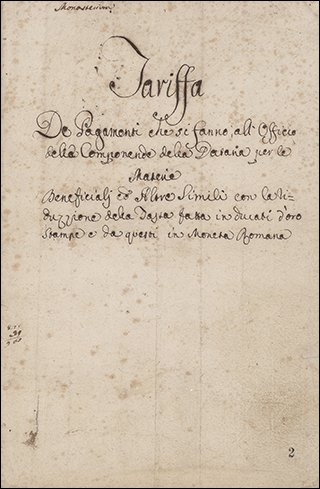 Monasterium
Tariffa
De Pagamenti che si fanno all' Officio
della Componende della Dataria per le
Materie
Beneficialj ed Altre Simili con la ri-
duzzione della Tassa fatta in ducati d'oro
stampe e da questi in Moneta Romana
2